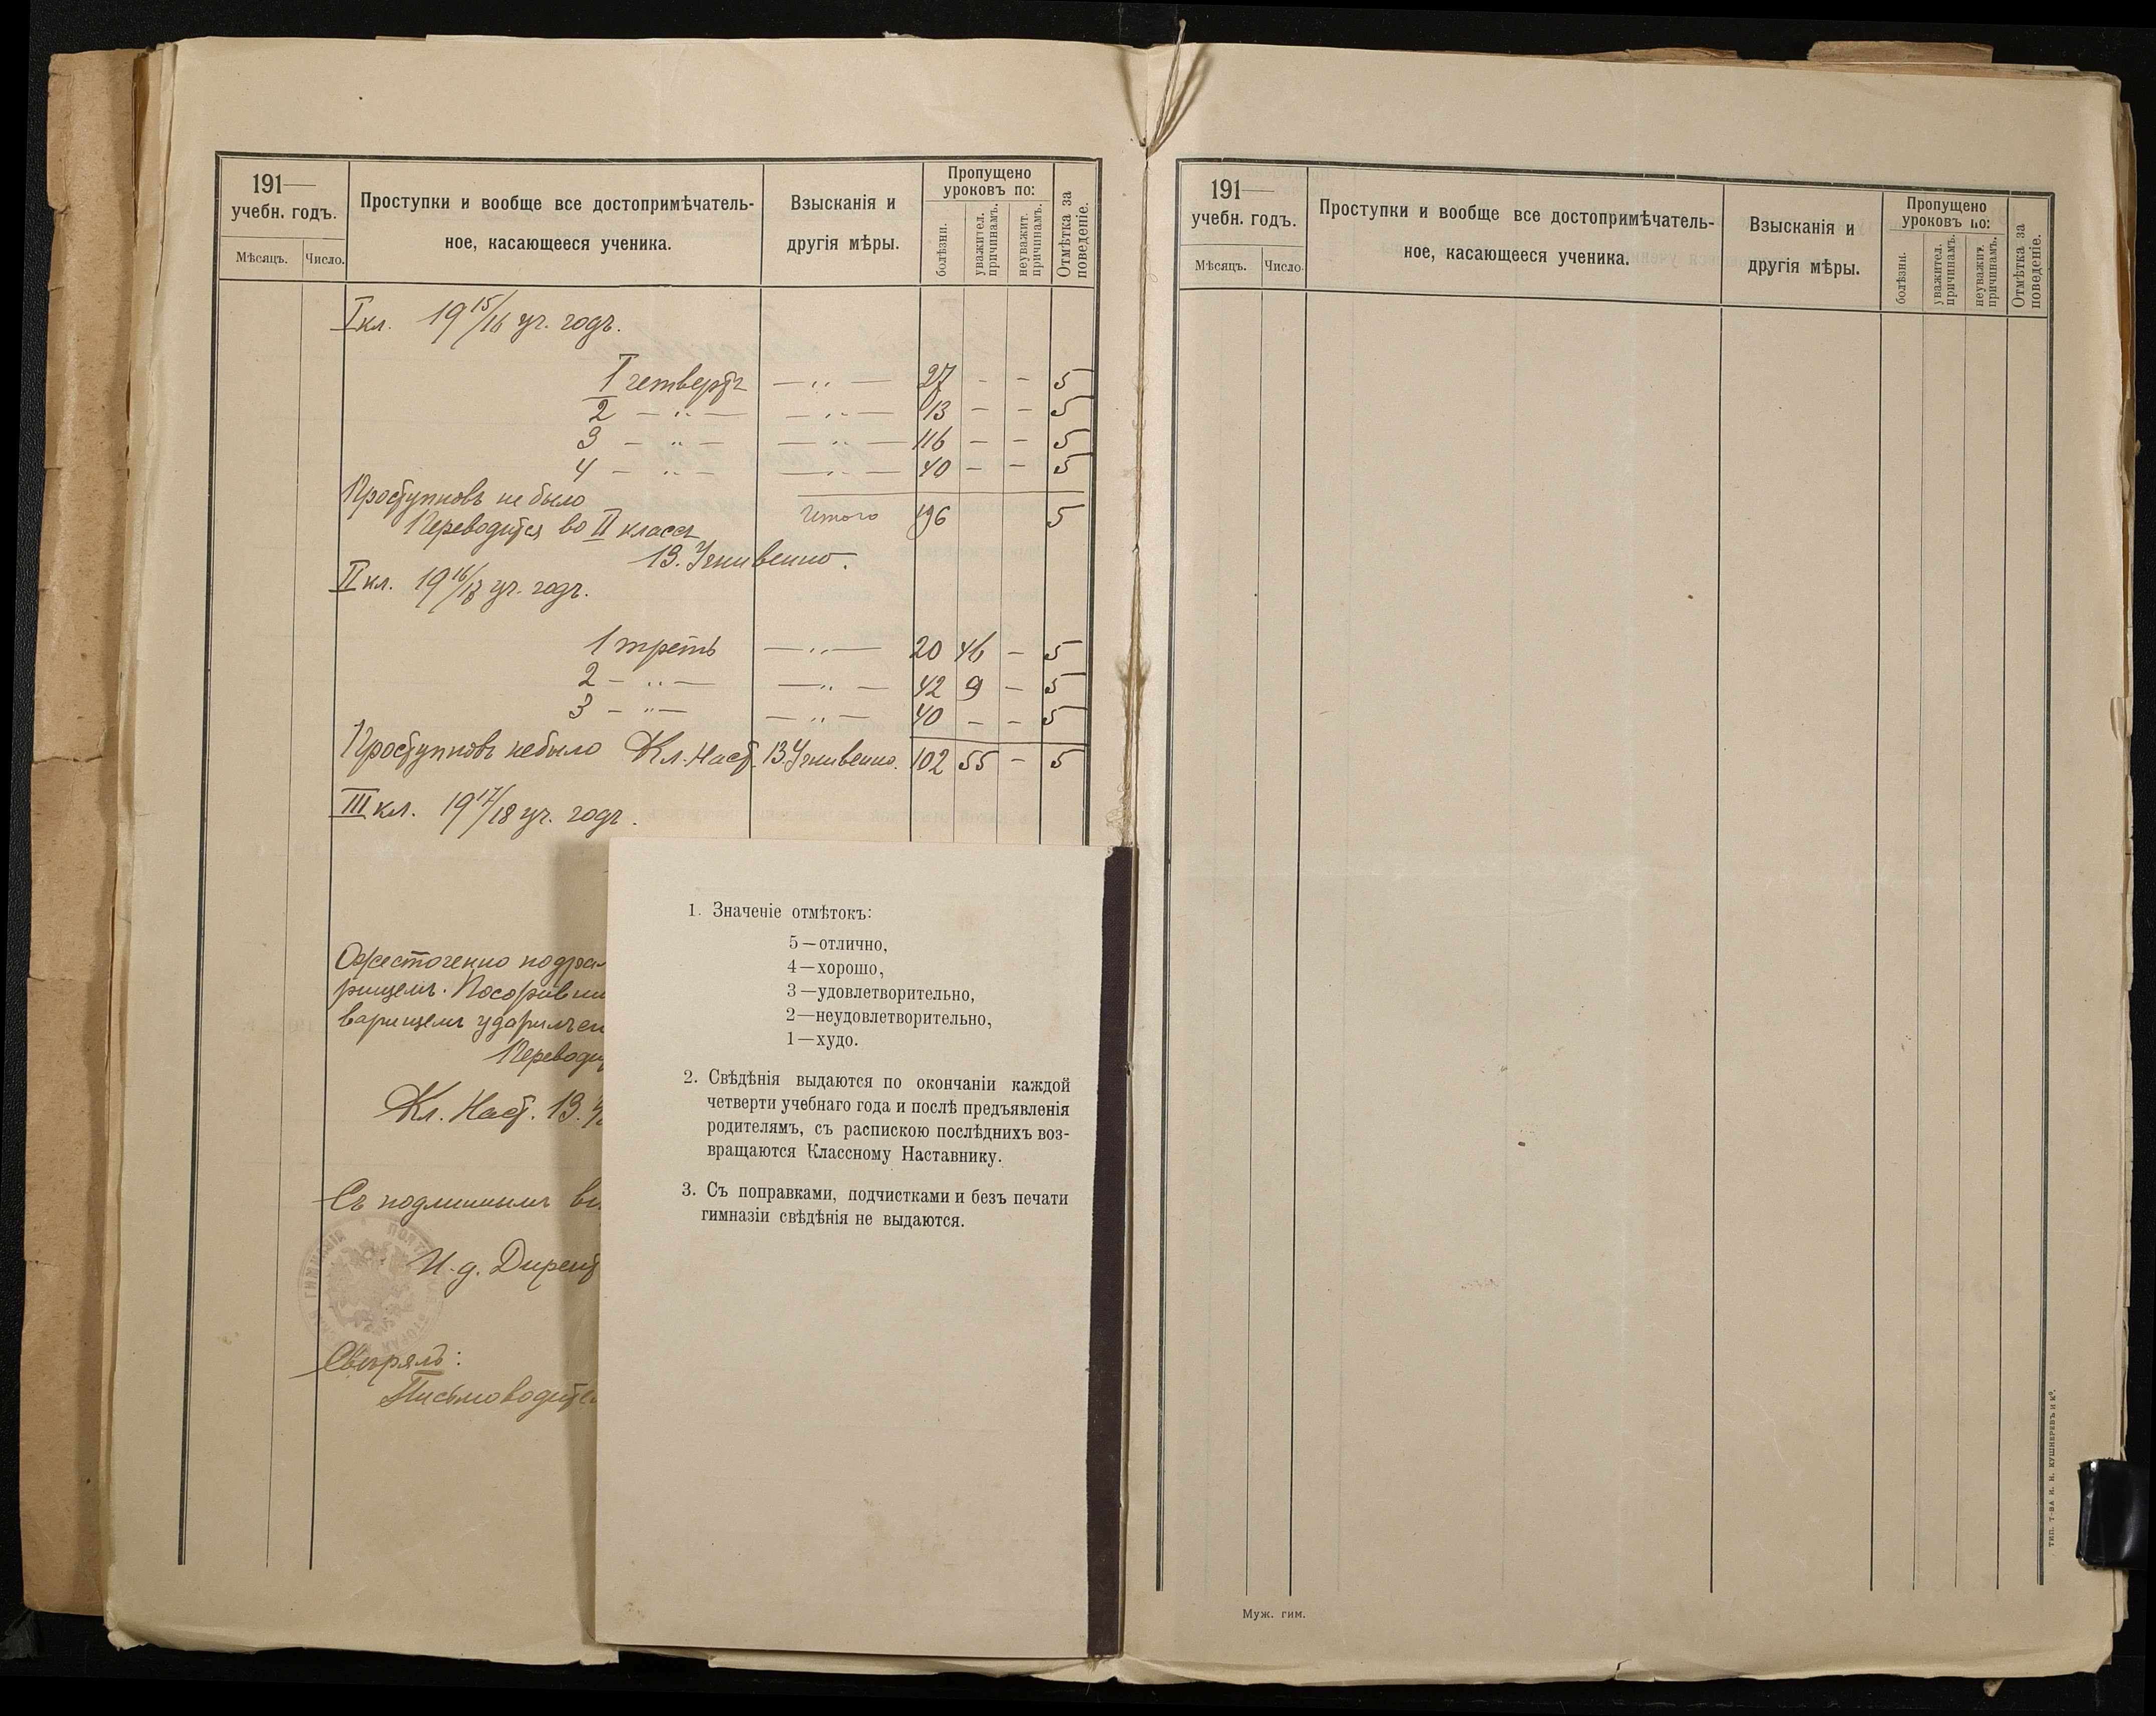 191—
учебн. годъ.
Мѣсяцъ. Число.
Проступки и вообще все достопримѣчатель-
ное, касающееся ученика.
Взысканія и
другія мѣры.
Пропущено
уроковъ по:
болѣзни.
уважител.
причинамъ.
неуважит.
причинамъ.
Отмѣтка за
поведеніе.
I кл. 1915/16 уч. годъ.
I четверть —„— 27 - - 5
2 —„— —„— 13 - - 5
3 —„— —„— 116 - - 5
4 —„— —„— 40 - - 5
Проступковъ не было
Итого 196 5
Переводится во II классъ
II кл. 1916/17 уч. годъ.
1 треть —„— 20 46 - 5
2 —„— —„— 42 9 - 5
3 —„— —„— 40 - - 5
Проступковъ не было Кл. Наст. 102 55 - 5
III кл. 1917/18 уч. годъ.
Ожесточенно
варищемъ ударилъ
Кл. Наст.
Съ подлиннымъ
И. д.
Свѣрялъ:
1. Значеніе отмѣтокъ:
5—отлично,
4—хорошо,
3—удовлетворительно,
2—неудовлетворительно,
1—худо.
2. Свѣдѣнія выдаются по окончаніи каждой
четверти учебнаго года и послѣ предъявленія
родителямъ, съ распискою послѣднихъ воз-
вращаются Классному Наставнику.
3. Съ поправками, подчистками и безъ печати
гимназіи свѣдѣнія не выдаются.
191—
учебн. годъ.
Мѣсяцъ. Число.
Проступки и вообще все достопримѣчатель-
ное, касающееся ученика.
Взысканія и
другія мѣры.
Пропущено
уроковъ по:
болѣзни.
уважител.
причинамъ.
неуважит.
причинамъ.
Отмѣтка за
поведеніе.
Муж. гим.
ТИП. Т-ВА И. Н. КУШНЕРЕВЪ И Ко.